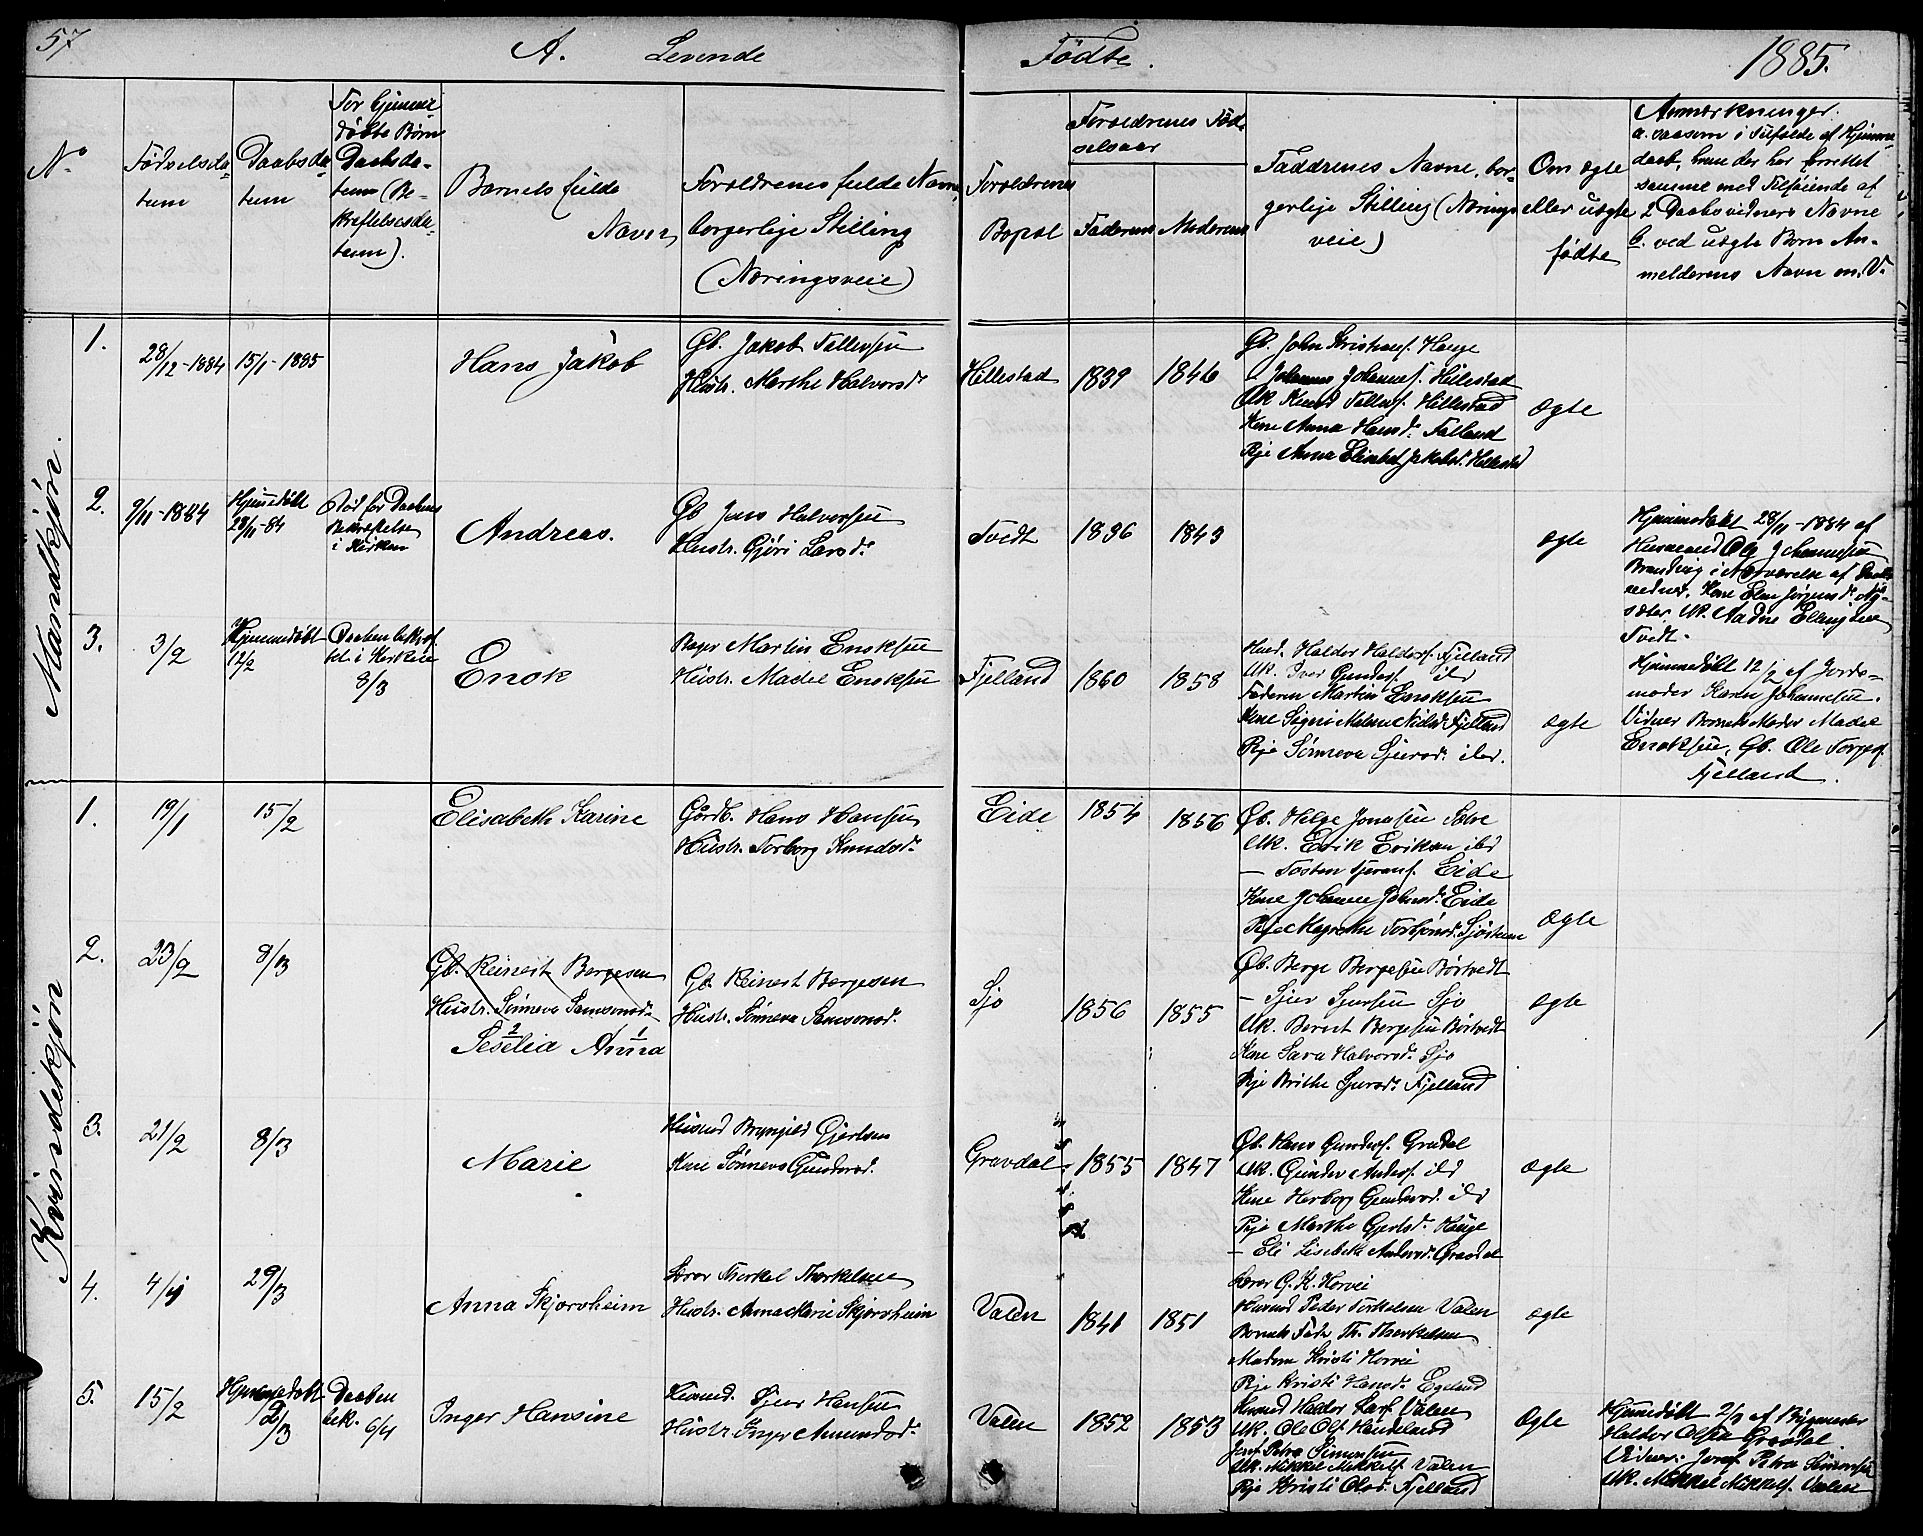 57
A. Levende Fødte. 1885.
No
Fødselsda-
tum
Daabsda-
tum
For hjemme
døbte Børn
Daabsda-
tum (Be-
kræftelsesda-
tum).
Barnets fulde
Navn
Forældrenes fulde Navne,
borgerlige Stilling
(Næringsveie)
Forældrenes
Bopæl
Forældrenes Fød-
selsaar
Faderens Moderens
Faddrenes Navne, bor-
gerlige Stilling (Nærings
veie)
Om ægte
eller uægte
fødte
Anmærkninger.
a. saasom i Tilfælde af Hjemme
daab, hvem der har forrettet
samme med Tilføiende af
2 Daabsvidners Navne
b. ved uægte Børn An-
melderens Navn m. V.
Mandkjøn.
1.
28/12-1884
15/1-1885
Hans Jakob
Gb. Jakob Tollevsen
Hustr. Marthe Halvorsd.
Hillestad
1839
1846
Gb. John Kristians. Hauge
- Johannes Johannes. Hillestad
Uk Knud Tollefs. Hillestad
Kone Anna Hansd. Folland
Pje Anna Elisabet Jakobsd. Hillestad
ægte
2.
9/11-1884
Hjemmedøbt
28/11-84
Død før Daabens
Bekræftelse
i Kirken
Andreas.
Gb Jens Halvorsen
Hustr. Gjøri Larsd.
Tvedt
1836
1843
ægte
Hjemmedøbt 28/11-1884 af
Husmand Ole Johannesen
Brandvig i Nærværelse af Daabs
vidner. Kone Elen Jørgensd. Nys-
æter, Uk. Aadne Ellingsen
Tvedt.
3.
3/2
Hjemmedøbt
12/2
Daaben bekræf
tet i Kirken
8/3
Enok
Bager Martin Enoksen
Hustr. Madel Enoksen
Fjelland
1860
1858
Husm. Haldor Haldors. Fjelland
Uk. Iver Gunders. ibd
Faderen Martin Enoksen
Kone Signi Malene Nielsd. Fjelland
Pje Sønneva Sjursd. ibd.
ægte
Hjemmedøbt 12/2 af Jorde-
moder Karen Johannesen.
Vidner Barnets Moder Madel
Enoksen, Gb. Ole Torges.
Fjelland.
Kvindekjøn
1.
19/1
15/2
Elisabeth Karine
Gårdb. Hans Hansen
Hustr. Torborg Knudsd.
Eide
1854
1856
Gb. Helge Jonasen Sølve
Uk. Erik Eriksen ibd
- Tosten Tjerans. Eide
Kone Johanne Johnsd. Eide
Pje Magrethe Torbjønsd. Sjøthun
ægte
2.
23/2
8/3
Gb. Reinert Bergesen
Hustr. Sønneva Samsonsd.
2 1
Seselia Anna
Gb. Reinert Bergesen
Hustr. Sønneva Samsonsd.
Sjo
1856
1855
Gb. Berge Bergesen Børtvedt
- Sjur Sjursen Sjo
Uk. Bernt Bergesen Børtvedt
Kone Sara Halvorsd. Sjo
Pje Brithe Sjursd. Fjelland
ægte
3.
21/2
8/3
Marie
Husmd Brynjeld Gjertsen
Kone Sønneva Gundersd.
Gravdal
1855
1847
Gb. Hans Gunders. Gravdal
Uk. Gunder Anders. ibd
Kone Herborg Gundersd. ibd
Pje Marthe Gjertsd. Hauge
- Eli Lisebeth Andersd. Gravdal
ægte
4.
4/1
29/3
Anna Skjorsheim
Lærer Therkel Therkelsen
Hustr. Anna Marie Skjorsheim
Valen
1841
1851
Lærer G. K. Horvei
Husmd Peder Torkelsen Valen
Barnets Fader Th. Therkelsen
Madam Kristi Horvei
Pje Kristi Hansd. Egeland
ægte
5.
15/2
Hjemmedøbt
2/3
Daaben
bek. 6/4
Inger Hansine
Husmd. Sjur Hansen
Hustr. Inger Amundsd.
Valen
1852
1853
Husmd Haldor Lars. Valen
Uk. Ole Ols. Handeland
Jomf Petra Simonsen
Uk. Mikkel Mikkels. Valen
Pje Kristi Olsd. Fjelland
Ægte
Hjemmedøbt 2/3 af Bygmester
Haldor Olsen Gravdal
Vidner: Jomf Petra Simonsen
Uk. Mikkel Mikkels. Valen